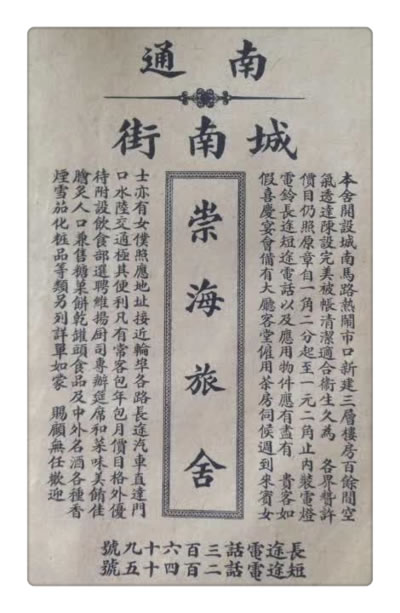 南通
城南街
本舍開設城南馬路熱鬧市口新建三層樓房百餘間空
氣透達陳設完美被帳清潔適合衛生久為 各界贊許
價目仍照原章自一角二分起至一元二角止內裝電燈
電鈴長途短途電話以及應用物件應有盡有 貴客如
假喜慶宴會備有大廳客堂僱用茶房伺候週到來賓女
崇海旅舍
士亦有女僕照應地址接近輪埠各路長途汽車直達門
口水陸交通極其便利凡有常客包年包月價目格外優
待附設飲食部選聘維揚厨司專辦筵席和菜味美餚佳
膾炙人口兼售糖菓餅乾罐頭食品及中外名酒各種香
煙雪茄化粧品等類另列詳單如蒙 賜顧無任歡迎
長途電話三百六十九號
短途電話二百四十五號